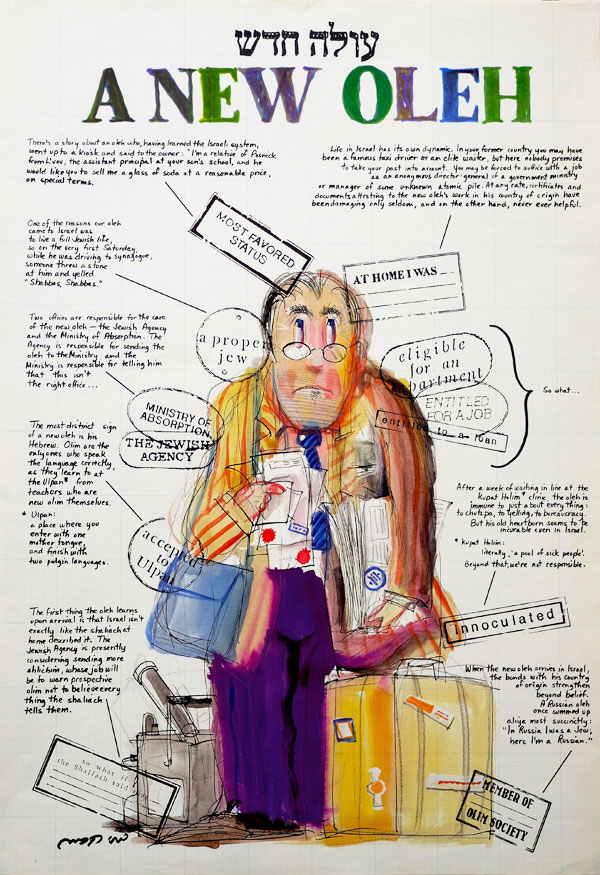 עולה חדש
A NEW OLEH
There's a story about an oleh who, having learned the Israeli system,
went up to a kiosk and said to the owner: "I'm a relative of Posnick
from L'vov, the assistant principal at your son's school, and he
would like you to sell me a glass of soda at a reasonable price,
on special terms.
Life in Israel has its own dynamic. In your former country you may have
been a famous taxi driver or an elite waiter, but here nobody promises
to take your past into account. You may be forced to suffice with a job
as an anonymous director-general of a government ministry
or manager of some unknown atomic pile. At any rate, certificates and
documents attesting to the new oleh's work in his country of origin have
been damaging only seldom, and on the other hand, never ever helpful.
MOST FAVORED
STATUS
AT HOME I WAS
One of the reasons our oleh
came to Israel was
to live a full Jewish life,
so on the very first Saturday,
while he was driving to synagogue,
someone threw a stone
at him and yelled
"Shabbes, Shabbes."
a proper
jew
eligible
for an
apartment
ENTITLED
FOR A JOB
entitled to a loan
So what...
Two offices are responsible for the care
of the new oleh — the Jewish Agency
and the Ministry of Absorption. The
Agency is responsible for sending the
oleh to the Ministry and the
Ministry is responsible for telling him
that this isn't
the right office...
MINISTRY OF
ABSORPTION
THE JEWISH
AGENCY
The most district sign
of a new oleh is his
Hebrew. Olim are the
only ones who speak
the language correctly,
as they learn to at
the Ulpan* from
teachers who are
new olim themselves.
* Ulpan:
a place where you
enter with one
mother tongue,
and finish with
two pidgin languages.
accepted
to
Ulpan
After a week of waiting in line at the
Kupat Holim* clinic, the oleh is
immune to just about everything:
to chutzpa, to yelling, to bureaucracy.
But his old heartburn seems to be
incurable even in Israel.
* Kupat Holim:
literally, "a pool of sick people".
Beyond that, we're not responsible.
innoculated
The first thing the oleh learns
upon arrival is that Israel isn't
exactly like the shaliach at
home described it. The
Jewish Agency is presently
considering sending more
shlichim, whose job will
be to warn prospective
olim not to believe every
thing the shaliach
tells them.
so what if
the Shaliach said
When the new oleh arrives in Israel,
the bonds with his country
of origin strengthen
beyond belief.
A Russian oleh
once summed up
aliya most succinctly:
"In Russia I was a Jew;
here I'm a Russian."
MEMBER OF
OLIM SOCIETY